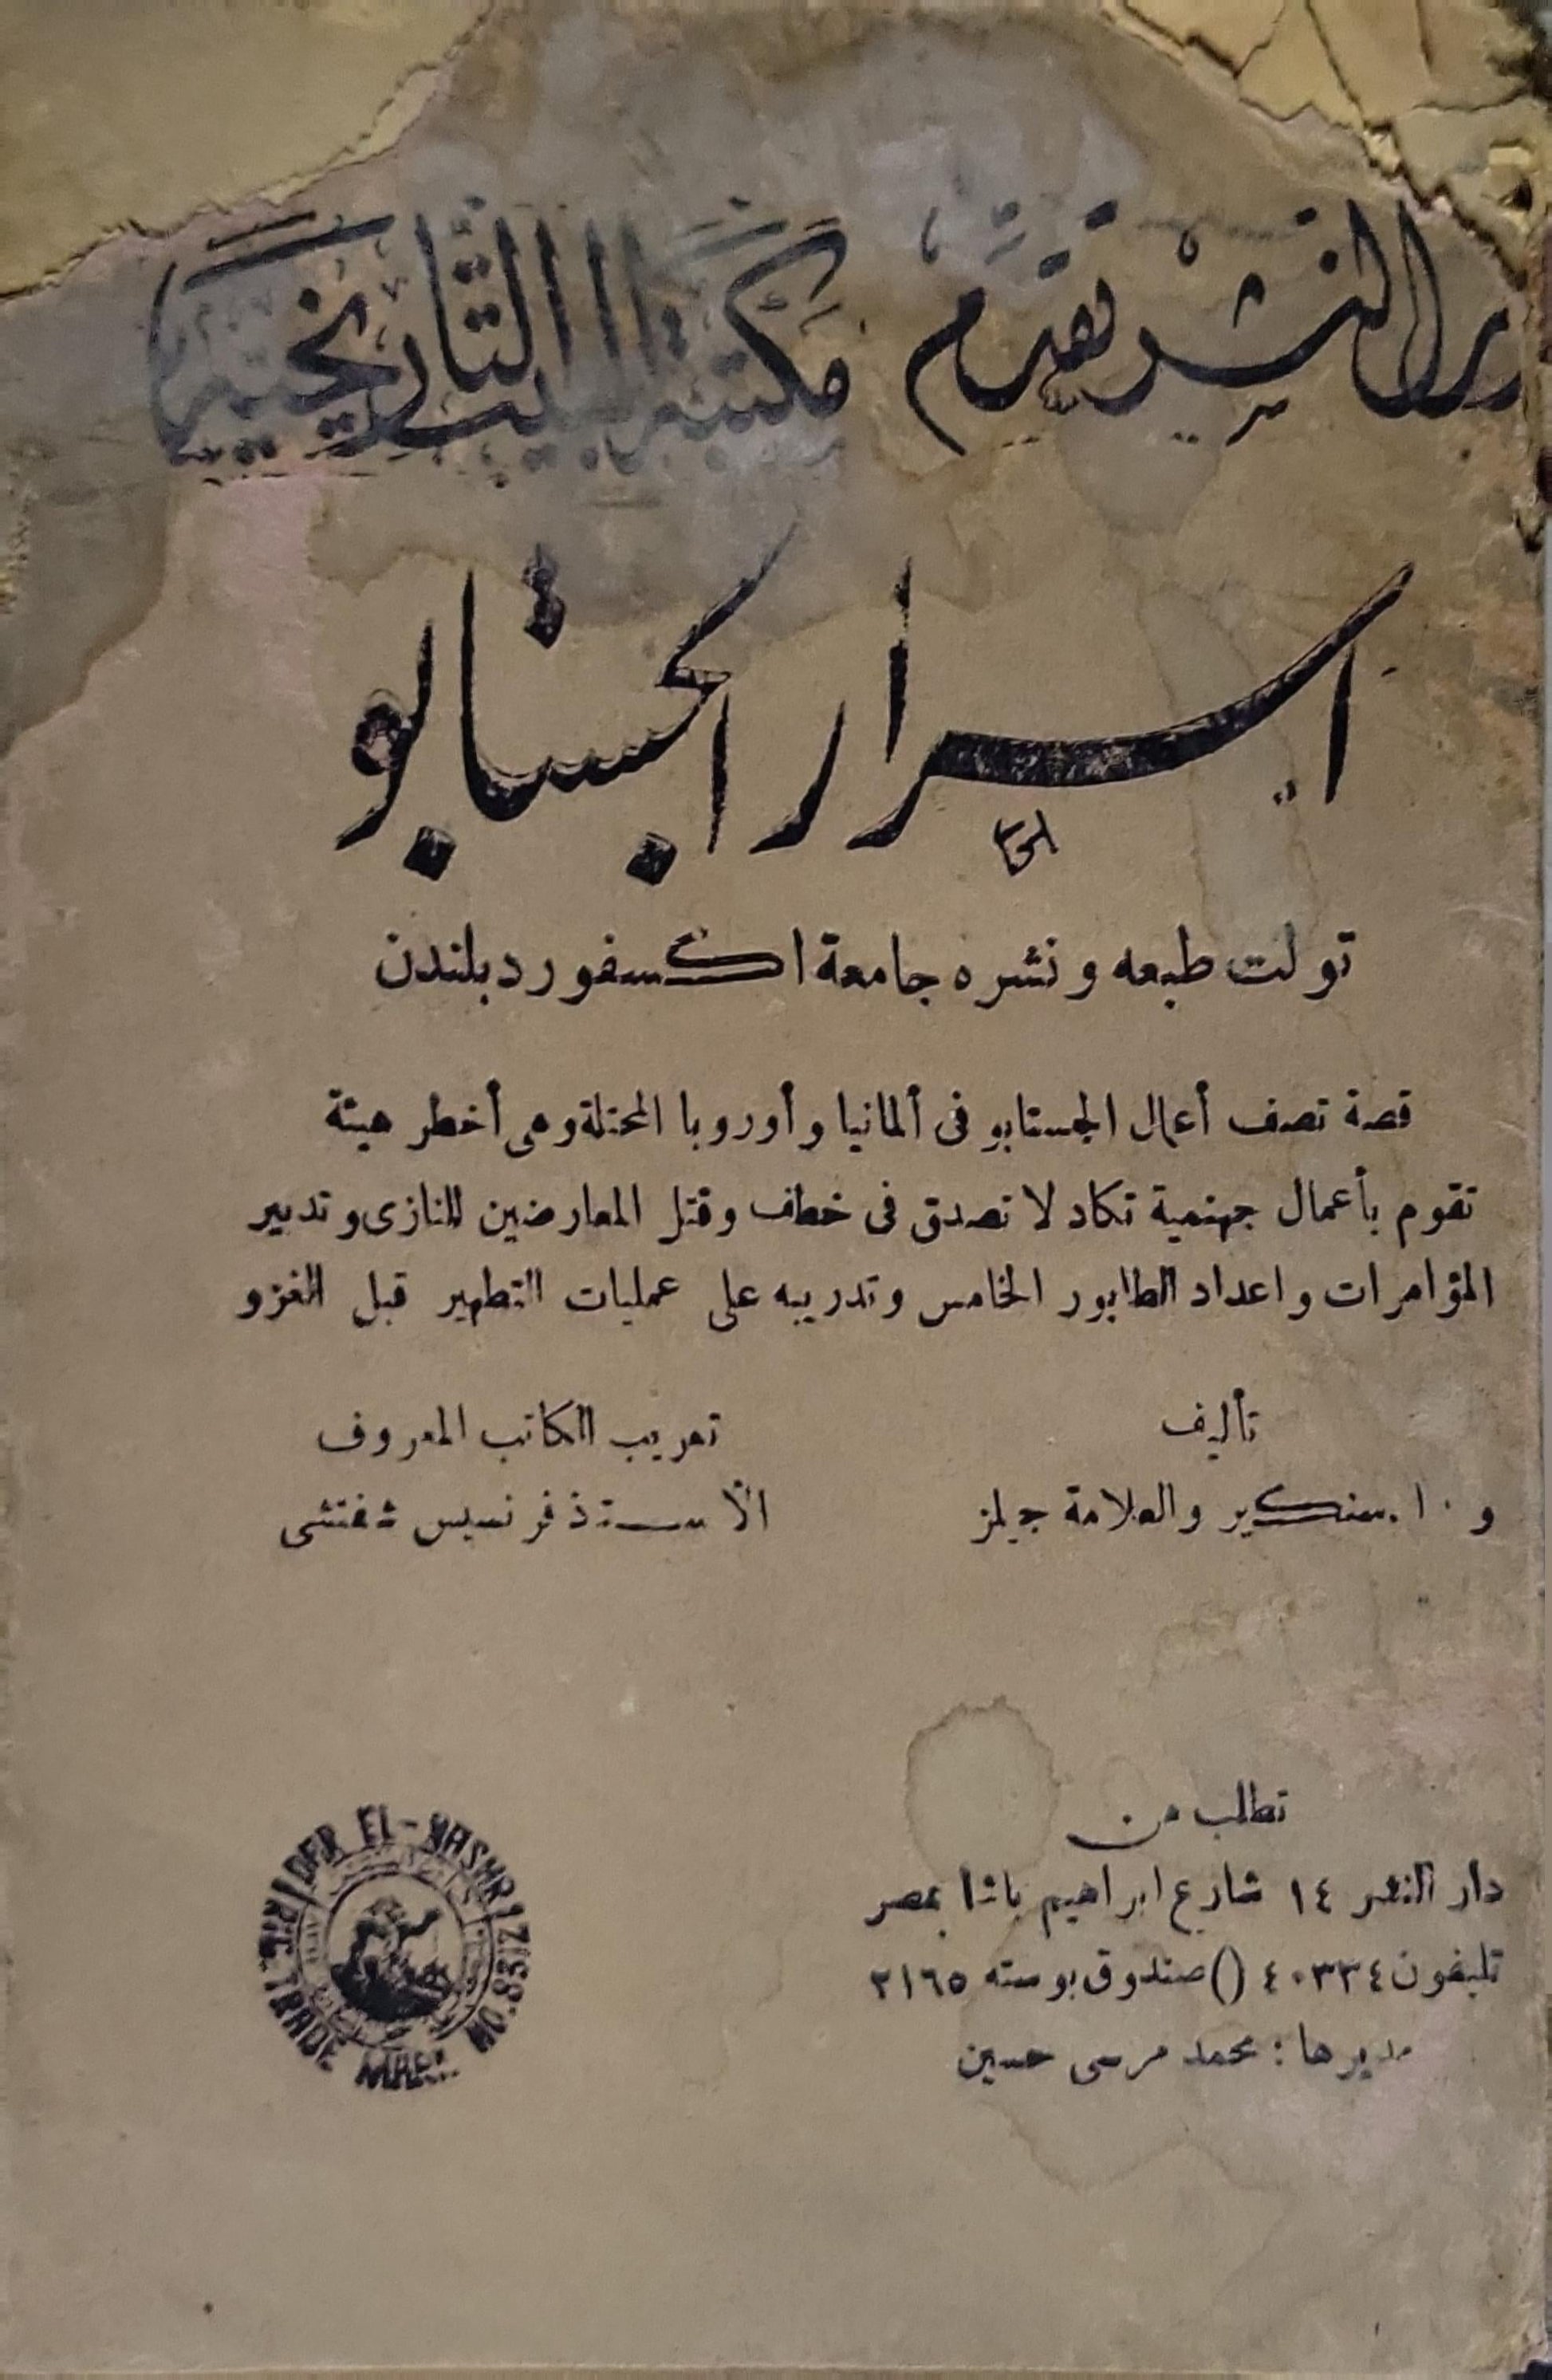 دار النشر تقدم مكتبة البيت التاريخية
أسرار الجستابو
تولت طبعه ونشره جامعة اكسفورد بلندن
قصة تصف أعمال الجستابو فى ألمانيا وأوروبا المحتلة وهى أخطر هيئة
تقوم بأعمال جهنمية تكاد لا تصدق فى خطف وقتل المعارضين للنازى وتدبير
المؤامرات واعداد الطابور الخامس وتدريبه على عمليات التطهير قبل الغزو
تأليف
و . ا . سنكير والعلامة جيلز
تعريب الكاتب المعروف
الأستاذ فرنسيس شفتشى
تطلب من
دار النشر ١٤ شارع ابراهيم باشا بمصر
تليفون ٤٠٣٣٤ () صندوق بوسته ٢١٦٥
مديرها : محمد مرسى حسين
EL-NASHR
TRADE MARK